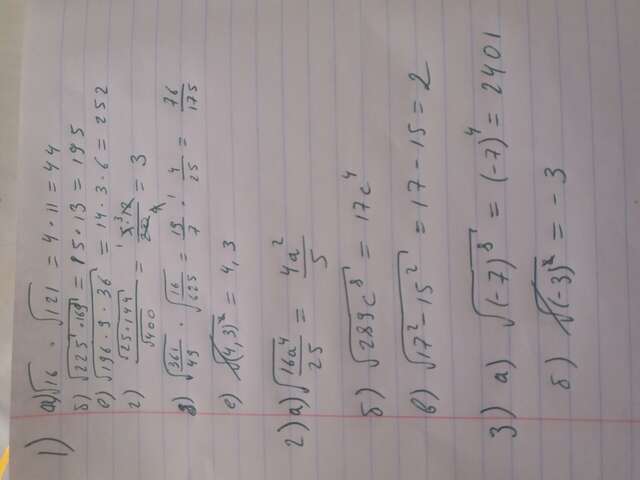 1) а) √16 · √121 = 4 · 11 = 44
б) √225 · 169 = 15 · 13 = 195
в) √196 · 9 · 36 = 14 · 3 · 6 = 252
г) = 3
д) √361/49 · √16/625 = 19/7 · 4/25 = 76/175
е) √(4,3)² = 4,3
2) а) √16a⁴/25 = 4a²/5
б) √289c⁸ = 17c⁴
в) √17² - 15² = 17 - 15 = 2
3) а) √(-7)⁸ = (-7)⁴ = 2401
б) √(-3)² = -3